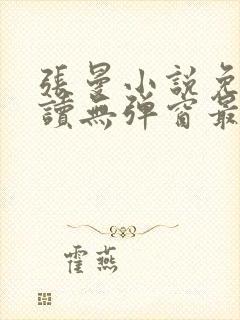 張曼小說免
讀無彈窗最
霍燕